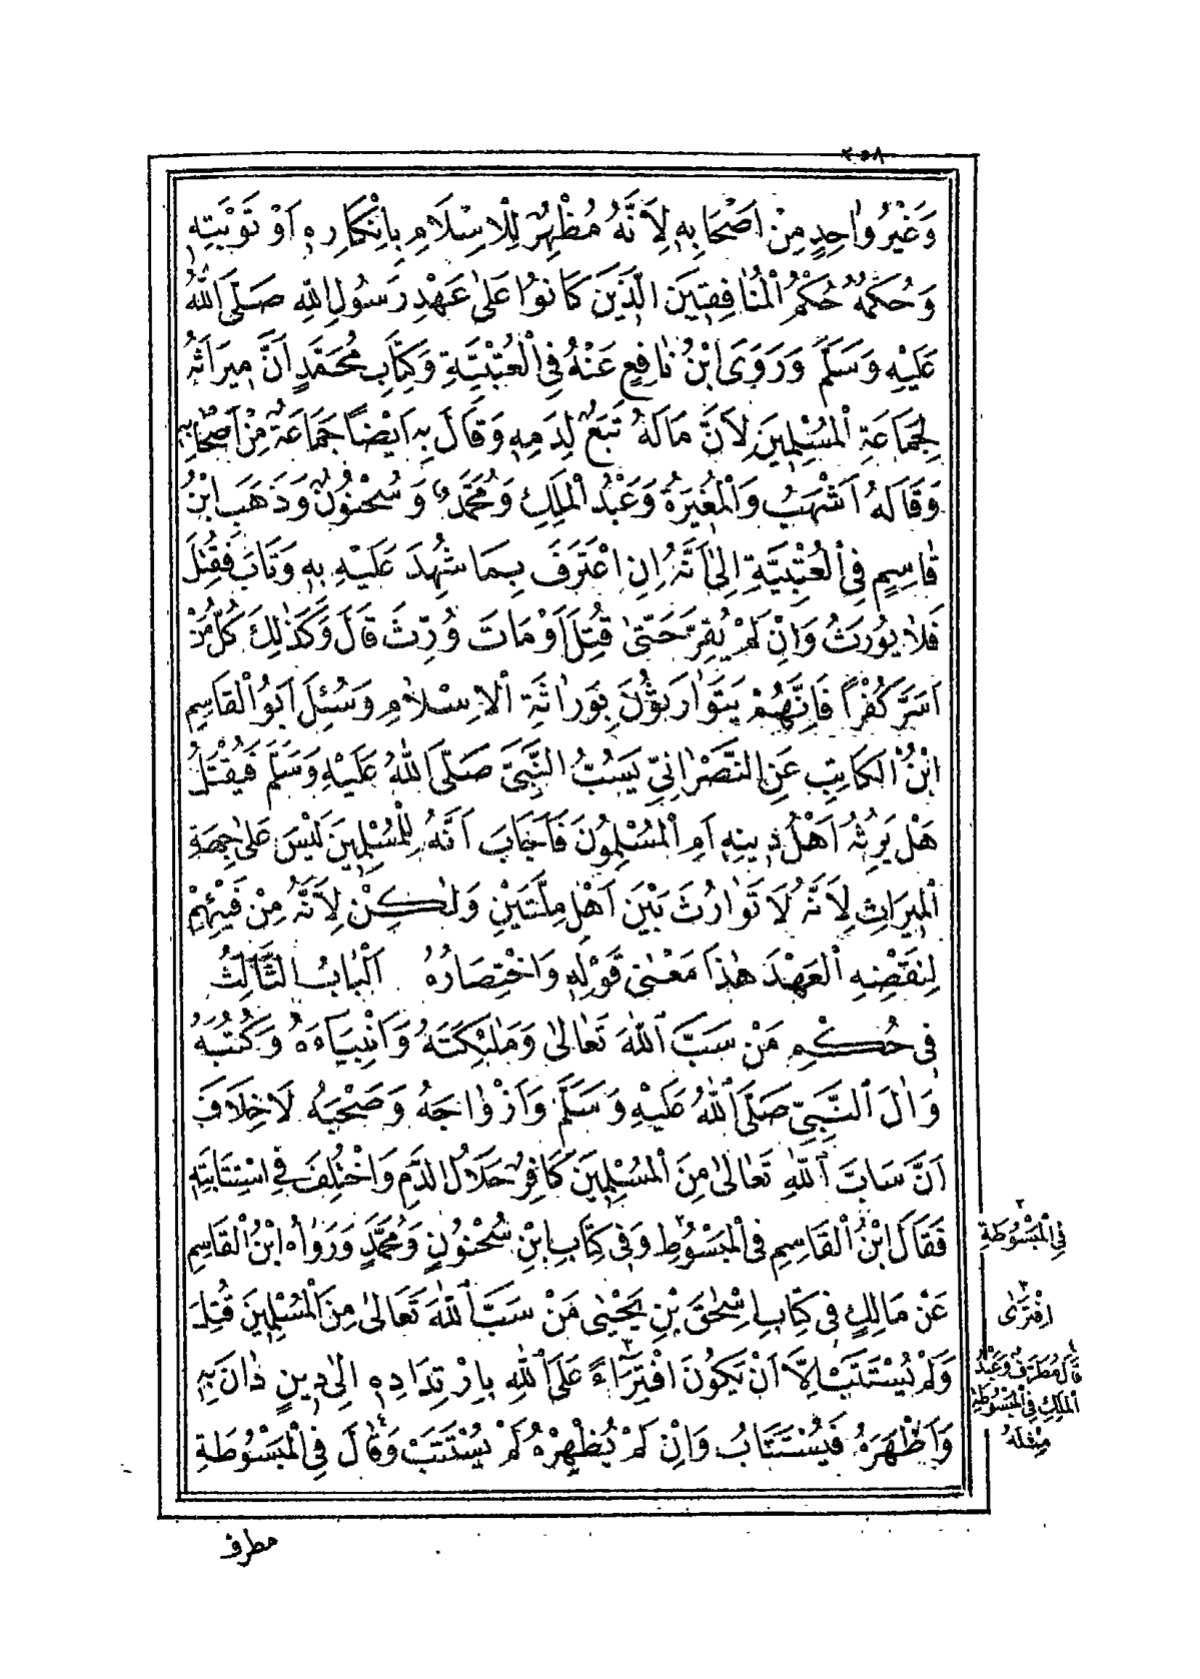 ٢٥٨
وَغَيْرُ وَاحِدٍ مِنْ اَصْحَابِهِ لِاَنَّهُ مُظْهِرٌ لِلْاِسْلَامِ بِاِنْكَارِهِ اَوْ تَوْبَتِهِ
وَحُكْمُهُ حُكْمُ الْمُنَافِقِينَ الَّذِينَ كَانُوا عَلٰى عَهْدِ رَسُولِ اللّٰهِ صَلَّى اللّٰهُ
عَلَيْهِ وَسَلَّمَ وَرَوَى ابْنُ نَافِعٍ عَنْهُ فِى الْعُتْبِيَّةِ وَكِتَابِ مُحَمَّدٍ اَنَّ مِيرَاثَهُ
لِجَمَاعَةِ الْمُسْلِمِينَ لِاَنَّ مَالَهُ تَبَعٌ لِدَمِهِ وَقَالَ بِهِ اَيْضًا جَمَاعَةٌ مِنْ اَصْحَابِهِ
وَقَالَهُ اَشْهَبُ وَالْمُغِيرَةُ وَعَبْدُ الْمَلِكِ وَمُحَمَّدٌ وَسُحْنُونٌ وَذَهَبَ ابْنُ
قَاسِمٍ فِى الْعُتْبِيَّةِ اِلٰى اَنَّهُ اِنِ اعْتَرَفَ بِمَا شُهِدَ عَلَيْهِ بِهِ وَتَابَ فَقُتِلَ
فَلَا يُورَثُ وَاِنْ لَمْ يُقِرَّ حَتّٰى قُتِلَ اَوْ مَاتَ وُرِّثَ قَالَ وَكَذٰلِكَ كُلُّ مَنْ
اَسَرَّ كُفْرًا فَاِنَّهُمْ يَتَوَارَثُونَ بِوَرَاثَةِ الْاِسْلَامِ وَسُئِلَ اَبُو الْقَاسِمِ
ابْنُ الْكَاتِبِ عَنِ النَّصْرَانِىِّ يَسُبُّ النَّبِىَّ صَلَّى اللّٰهُ عَلَيْهِ وَسَلَّمَ فَيُقْتَلُ
هَلْ يَرِثُهُ اَهْلُ دِينِهِ اَمِ الْمُسْلِمُونَ فَاَجَابَ اَنَّهُ لِلْمُسْلِمِينَ لَيْسَ عَلٰى جِهَةِ
الْمِيرَاثِ لِاَنَّهُ لَا تَوَارُثَ بَيْنَ اَهْلِ مِلَّتَيْنِ وَلٰكِنْ لِاَنَّهُ مِنْ فَيْئِهِمْ
لِنَقْضِهِ الْعَهْدَ هٰذَا مَعْنٰى قَوْلِهِ وَاخْتِصَارُهُ اَلْبَابُ الثَّالِثُ
فِى حُكْمِ مَنْ سَبَّ اللّٰهَ تَعَالٰى وَمَلٰئِكَتَهُ وَاَنْبِيَاءَهُ وَكُتُبَهُ
وَاٰلَ النَّبِىِّ صَلَّى اللّٰهُ عَلَيْهِ وَسَلَّمَ وَاَزْوَاجَهُ وَصَحْبَهُ لَا خِلَافَ
اَنَّ سَابَّ اللّٰهِ تَعَالٰى مِنَ الْمُسْلِمِينَ كَافِرٌ حَلَالُ الدَّمِ وَاخْتُلِفَ فِى اسْتِتَابَتِهِ
فَقَالَ ابْنُ الْقَاسِمِ فِى الْمَبْسُوطِ وَفِى كِتَابِ ابْنِ سُحْنُونٍ وَمُحَمَّدٍ وَرَوَاهُ ابْنُ الْقَاسِمِ
عَنْ مَالِكٍ فِى كِتَابِ اِسْحٰقَ بْنِ يَحْيٰى مَنْ سَبَّ اللّٰهَ تَعَالٰى مِنَ الْمُسْلِمِينَ قُتِلَ
وَلَمْ يُسْتَتَبْ اِلَّا اَنْ يَكُونَ افْتِرَاءً عَلَى اللّٰهِ بِارْتِدَادِهِ اِلٰى دِينٍ دَانَ بِهِ
وَاَظْهَرَهُ فَيُسْتَتَابُ وَاِنْ لَمْ يُظْهِرْهُ لَمْ يُسْتَتَبْ وَقَالَ فِى الْمَبْسُوطَةِ
مطرف
٢
فِى الْمَبْسُوطَةِ
٣
افْتَرٰى
٤
قَالَ مُطَرِّفٌ وَعَبْدُ
الْمَلِكِ فِى الْمَبْسُوطَةِ
مِثْلَهُ